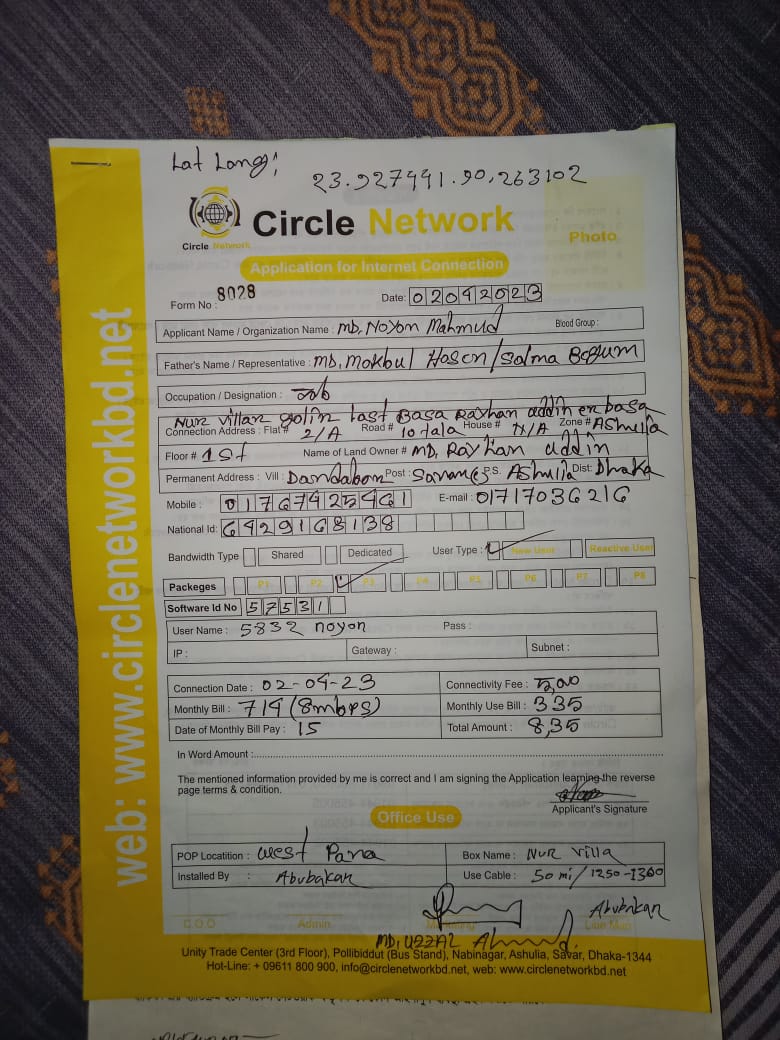 Lat Long:
23.927441.90,263102
Circle Network
Circle Network
Photo
Application for Internet Connection
Form No : 8028
Date: 02042023
Applicant Name / Organization Name : MD. Noyon Mahmud Blood Group :
Father's Name / Representative : MD. Mokbul Hosen/Salma Begum
Occupation / Designation : Job
Nur villar golir last Basa Rayhan uddin er basa
Connection Address : Flat # 2/A Road # 10 tala House # N/A Zone # AShulia
Floor # 1st Name of Land Owner # MD, Rayhan uddin
Permanent Address : Vill : Dandabon Post : P.S. AShulia Dist: Dhaka
Mobile : E-mail : 01717036216
National Id: 6429168138
Bandwidth Type Shared Dedicated User Type : New User Reactive User
Packeges P1 P2 P3 P4 P5 P6 P7 P8
Software Id No 57531
User Name : 5832 noyon Pass :
IP : Gateway : Subnet :
Connection Date : 02-04-23 Connectivity Fee :
Monthly Bill : 714 (8mbps) Monthly Use Bill : 335
Date of Monthly Bill Pay : 15 Total Amount : 8,35
In Word Amount :
The mentioned information provided by me is correct and I am signing the Application learning the reverse
page terms & condition.
Applicant's Signature
Office Use
POP Locatition : West Para Box Name : Nur Villa
Installed By : Abubakar Use Cable : 50 mi/1250-1300
Abubakar
C.O.O Admin Line Man
MD, UZZAL Ahmed.
Unity Trade Center (3rd Floor), Pollibiddut (Bus Stand), Nabinagar, Ashulia, Savar, Dhaka-1344
Hot-Line: + 09611 800 900, info@circlenetworkbd.net, web: www.circlenetworkbd.net
web: www.circlenetworkbd.net